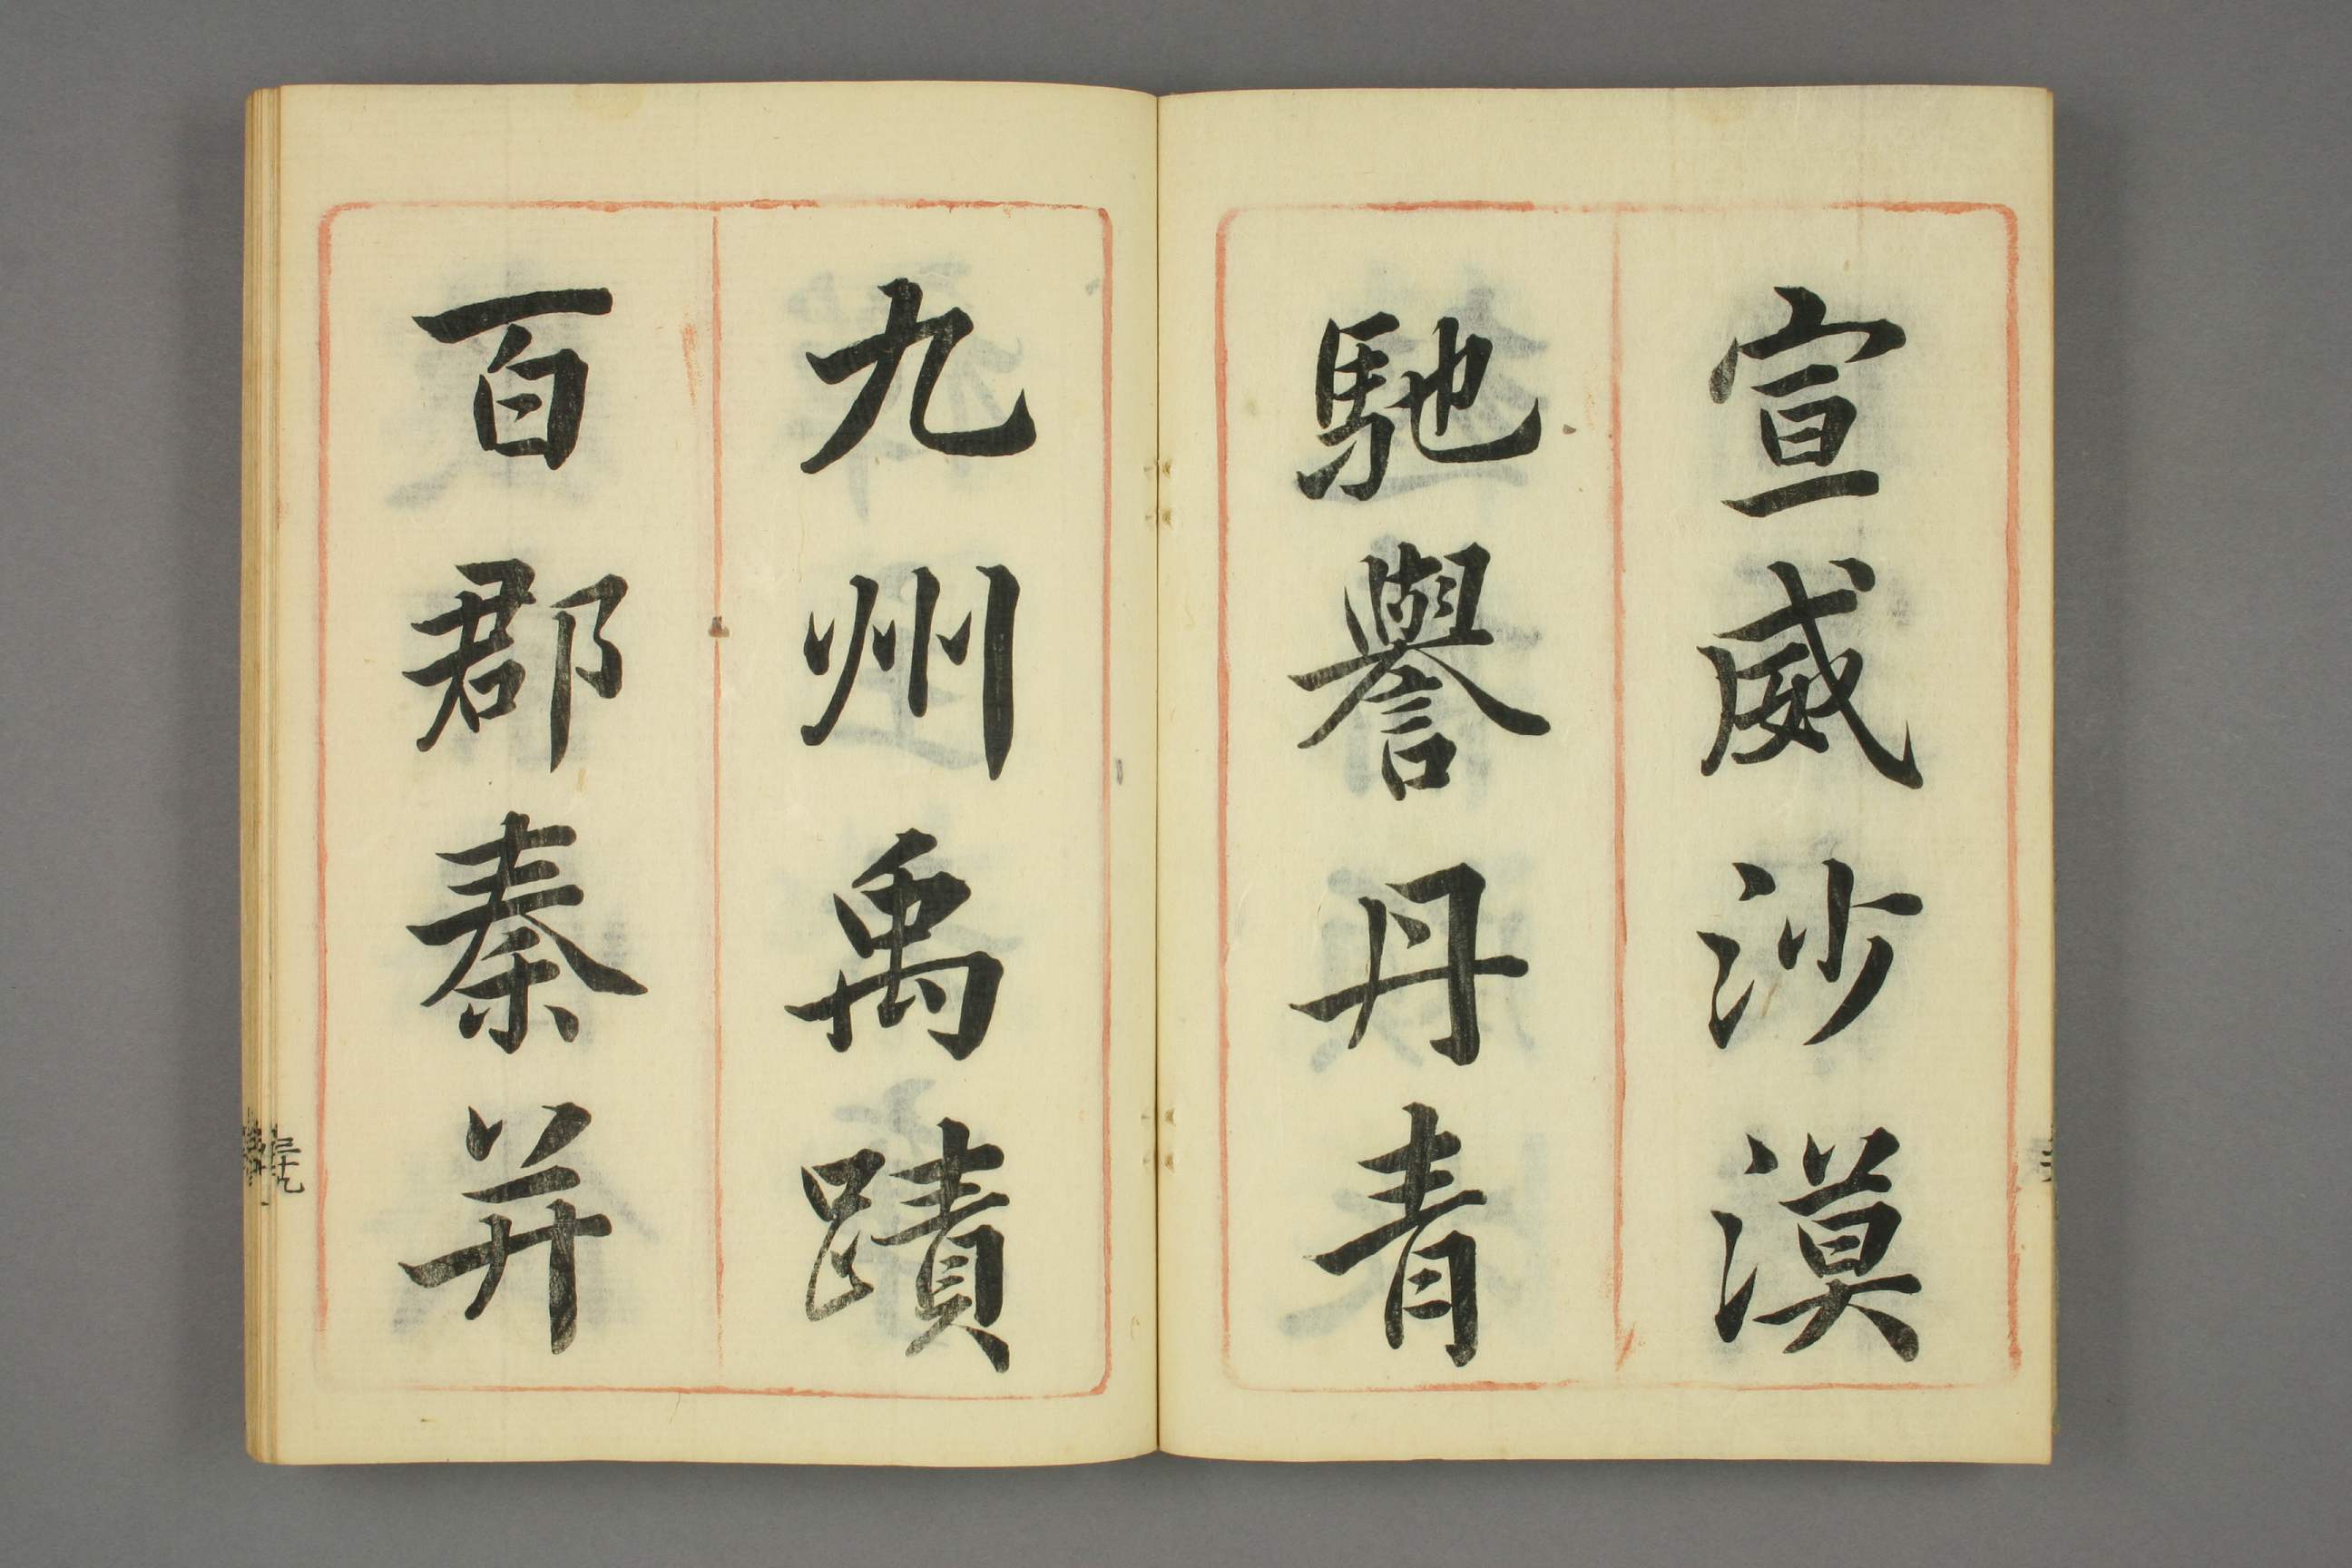 宣威沙漠
馳譽丹青
九州禹蹟
百郡秦并
三十九